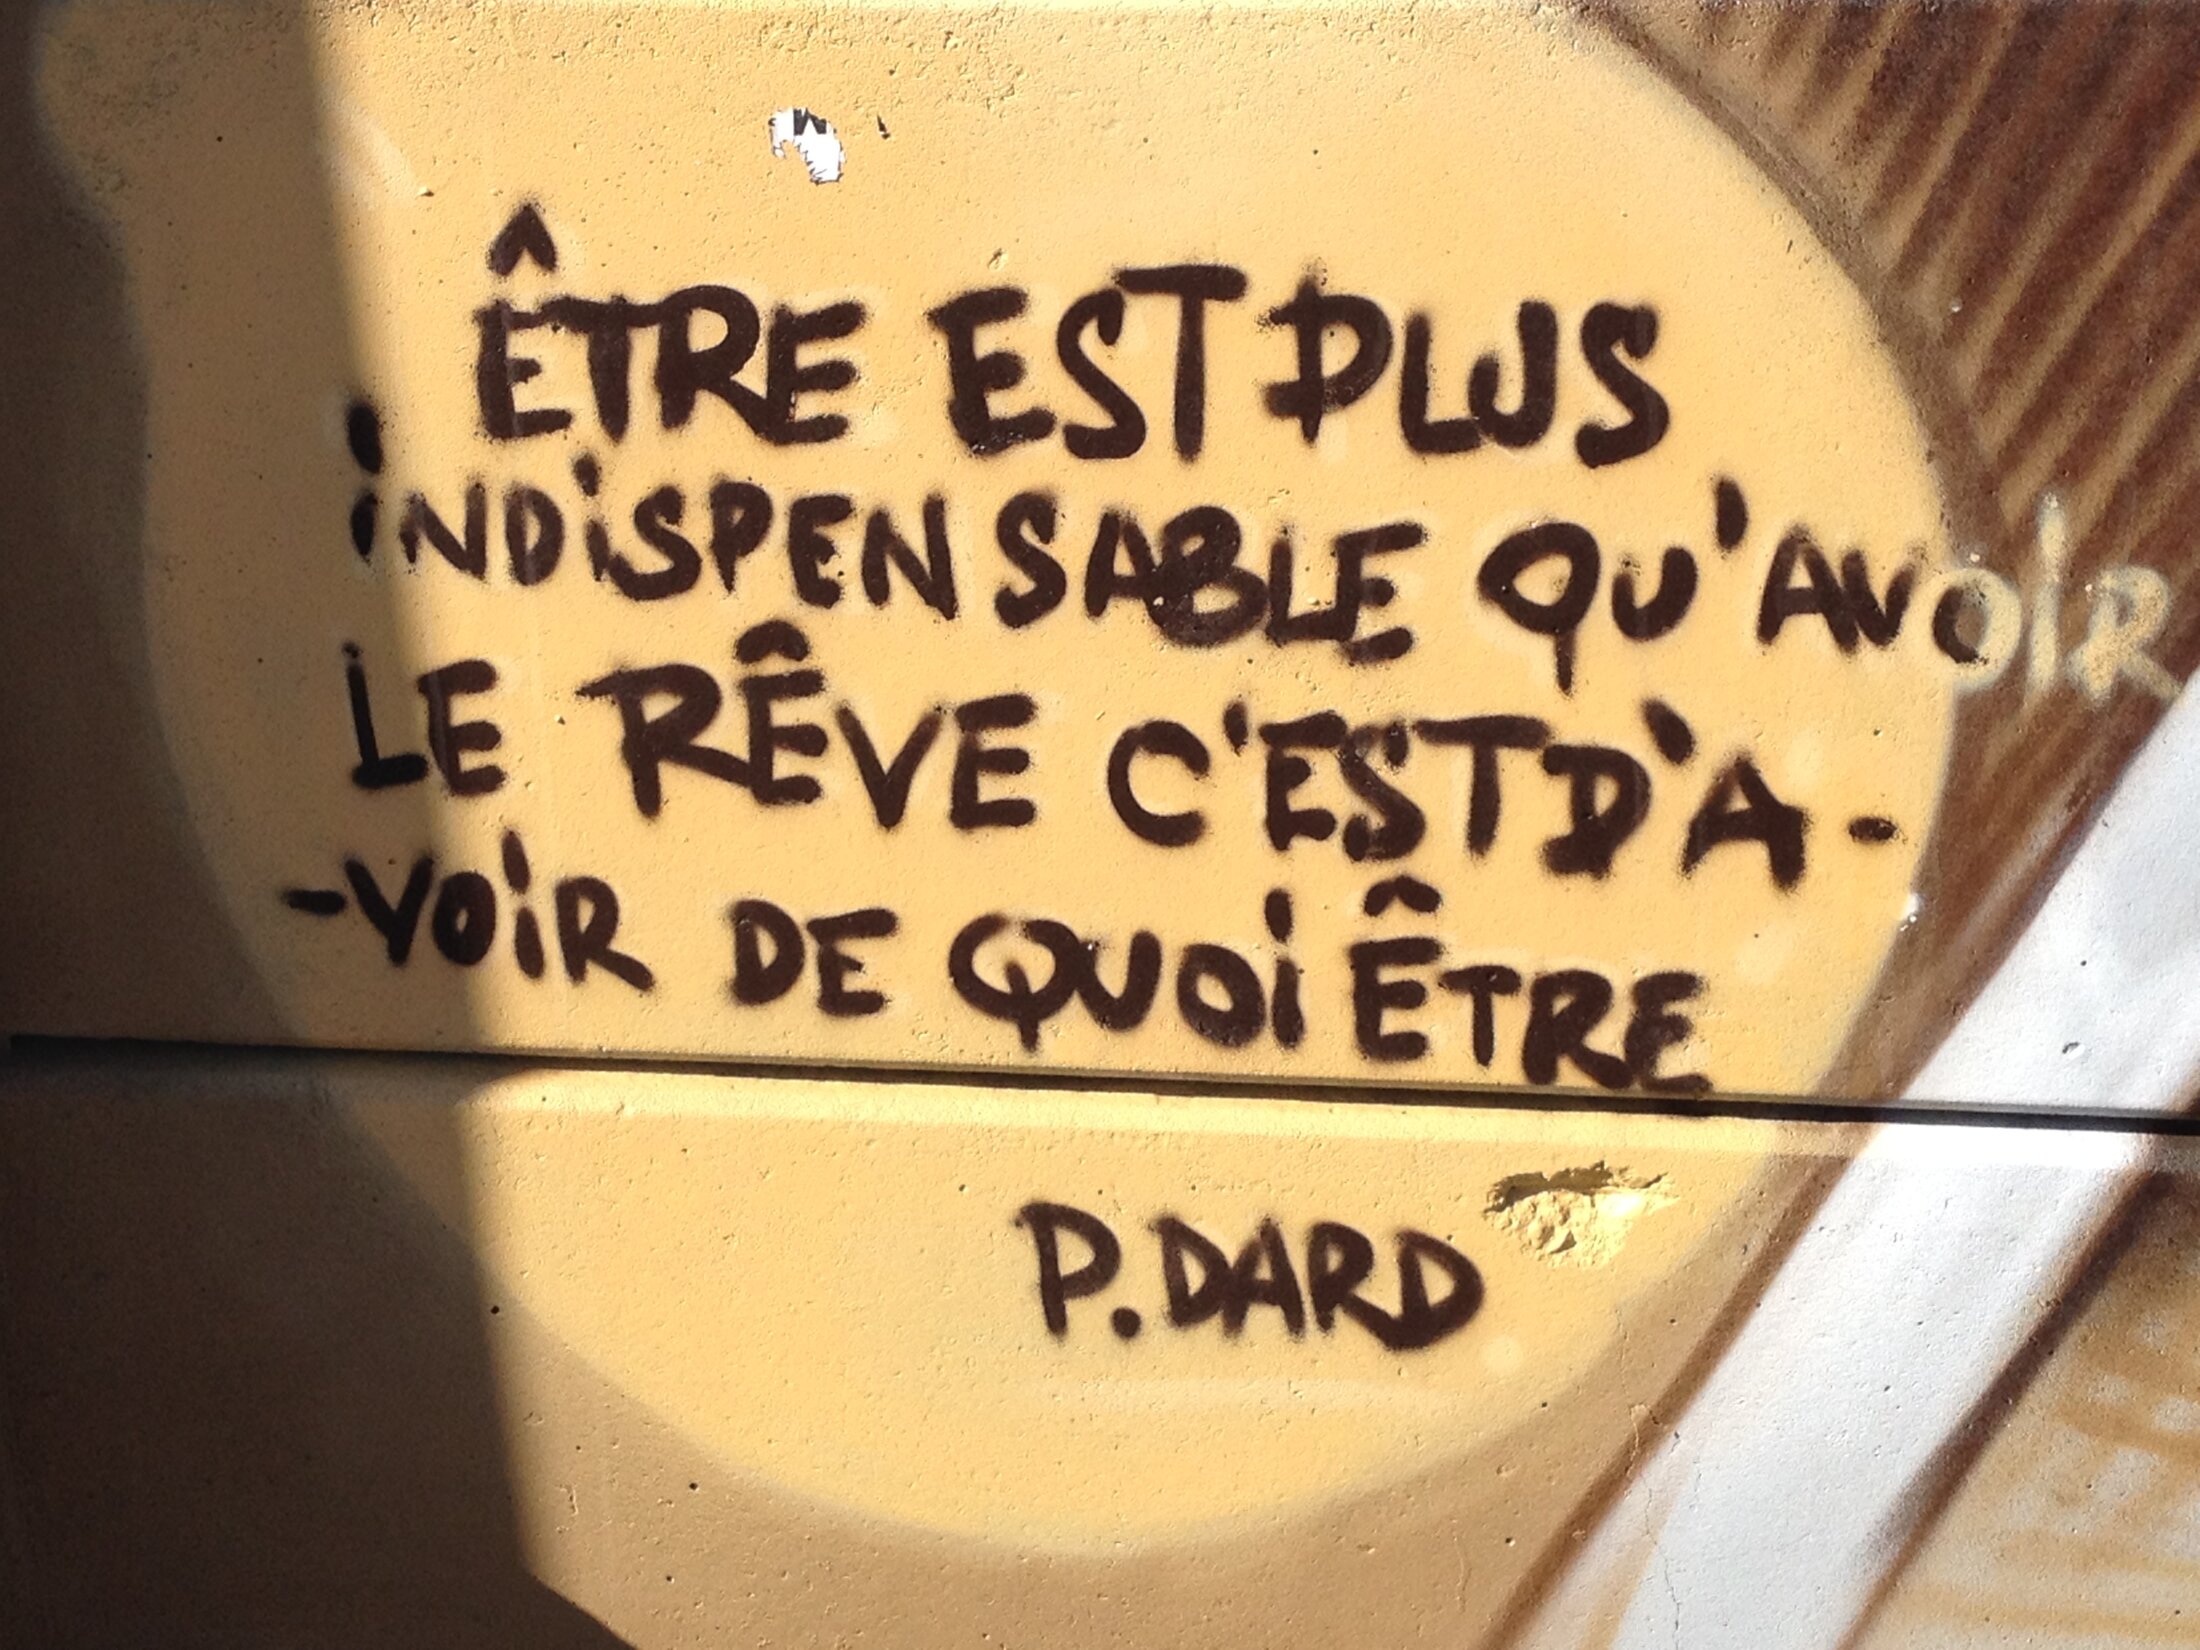 ÊTRE EST PLUS
iNDiSPENSABLE QU'AVOIR
LE RÊVE C'EST D'A-
-VOiR DE QUOi ÊTRE
P. DARD